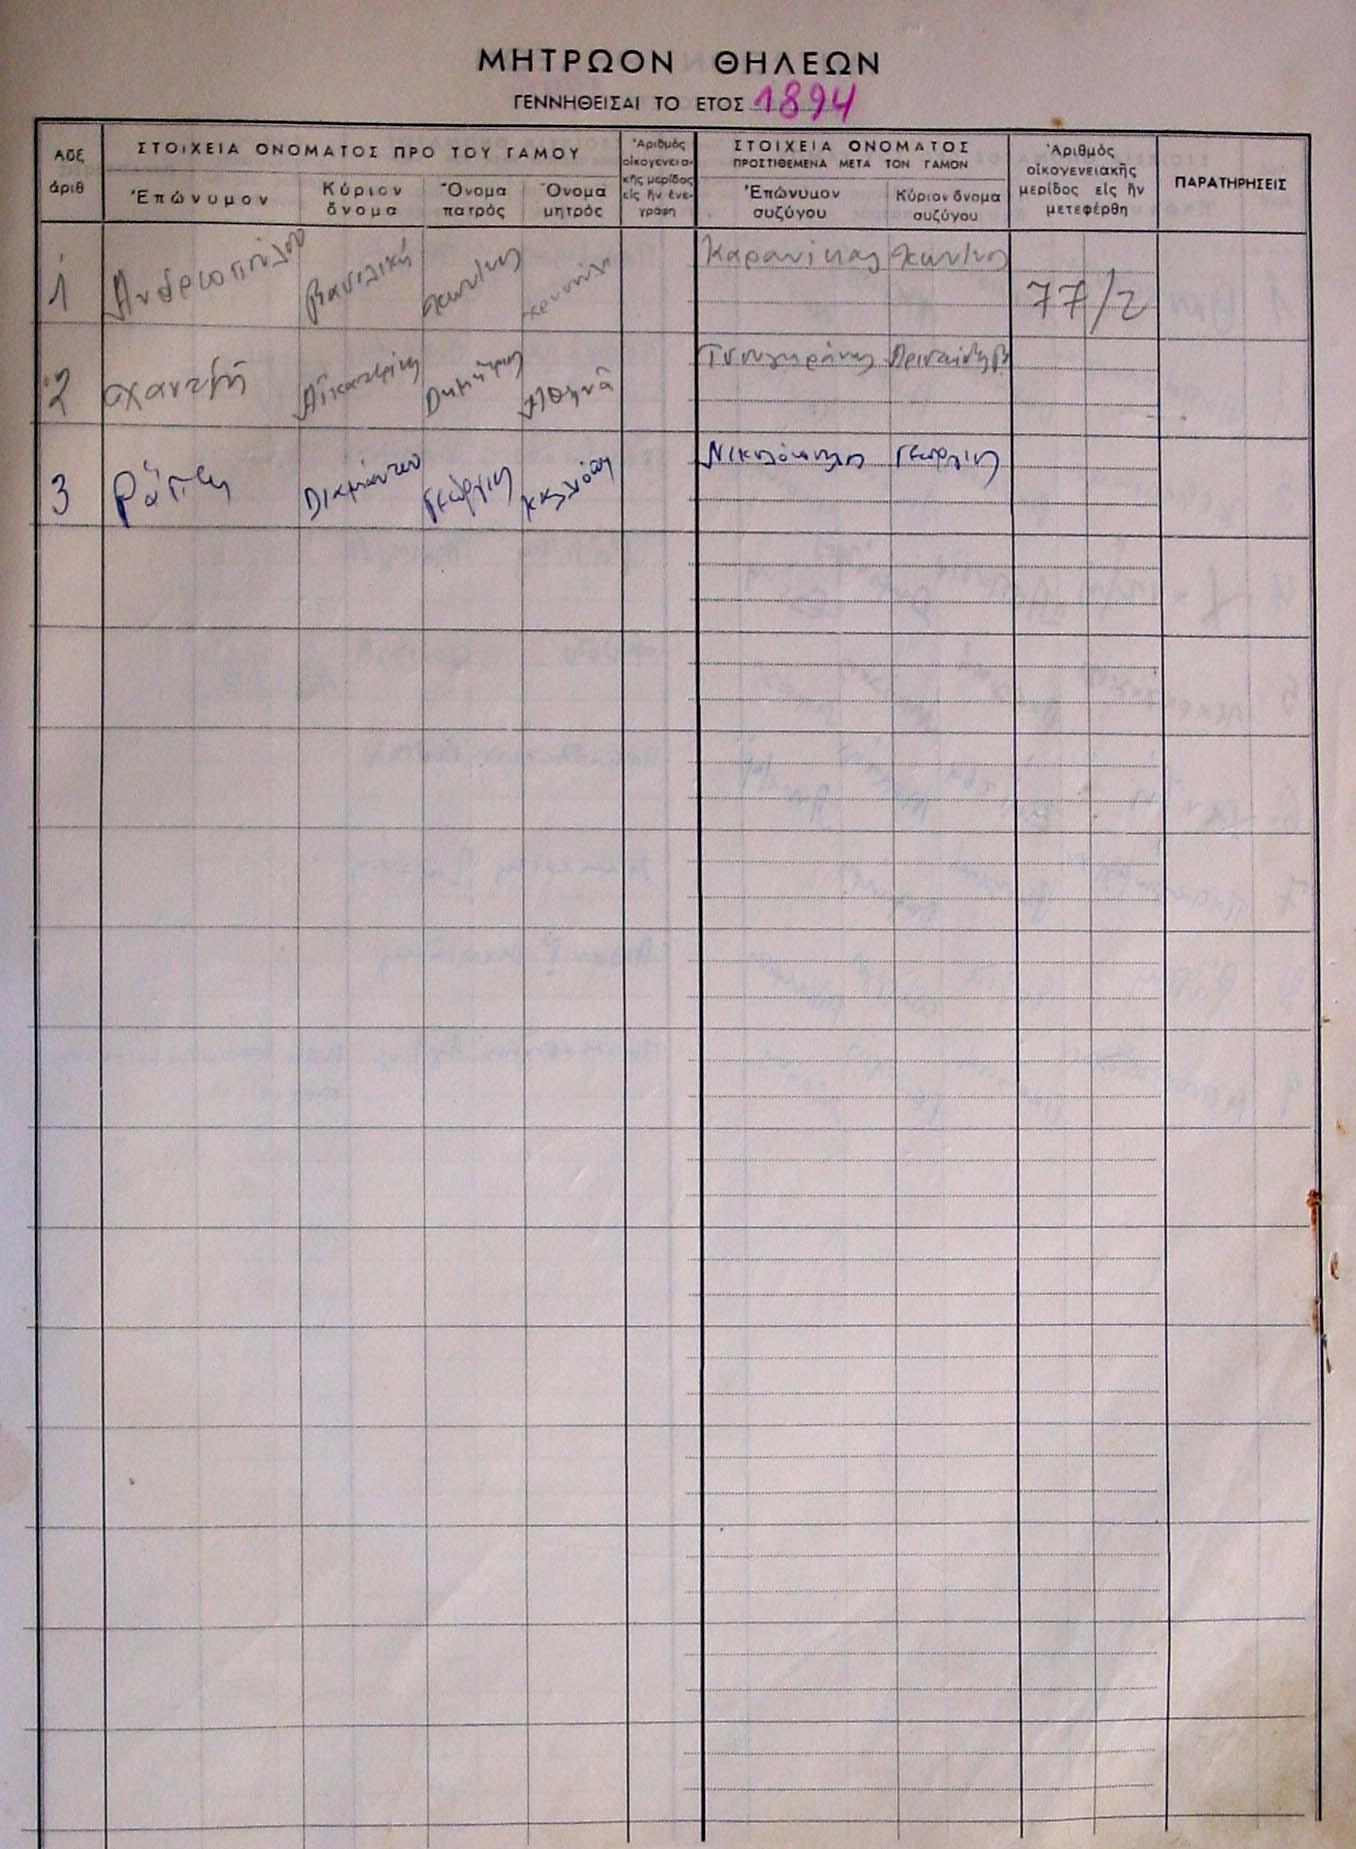 ΜΗΤΡΩΟΝ ΘΗΛΕΩΝ
ΓΕΝΝΗΘΕΙΣΑΙ ΤΟ ΕΤΟΣ 1894
Αὔξ ἀριθ
ΣΤΟΙΧΕΙΑ ΟΝΟΜΑΤΟΣ ΠΡΟ ΤΟΥ ΓΑΜΟΥ
Ἐπώνυμον
Κύριον ὄνομα
Ὄνομα πατρός
Ὄνομα μητρός
Ἀριθμὸς οἰκογενεια-κῆς μερίδος εἰς ἣν ἐνε-γράφη
ΣΤΟΙΧΕΙΑ ΟΝΟΜΑΤΟΣ
ΠΡΟΣΤΙΘΕΜΕΝΑ ΜΕΤΑ ΤΟΝ ΓΑΜΟΝ
Ἐπώνυμον συζύγου
Κύριον ὄνομα συζύγου
Ἀριθμὸς οἰκογενειακῆς μερίδος εἰς ἣν μετεφέρθη
ΠΑΡΑΤΗΡΗΣΕΙΣ
1 Ανδριοπούλου Βασιλική Κων/νος Καρανίκας Κων/νος 77/2
2 Αἰκατερίνη Δημήτριος Ἀθηνᾶ
3 Ράπτη Διαμάντω Γεώργιος Νικολόπουλος Γεώργιος